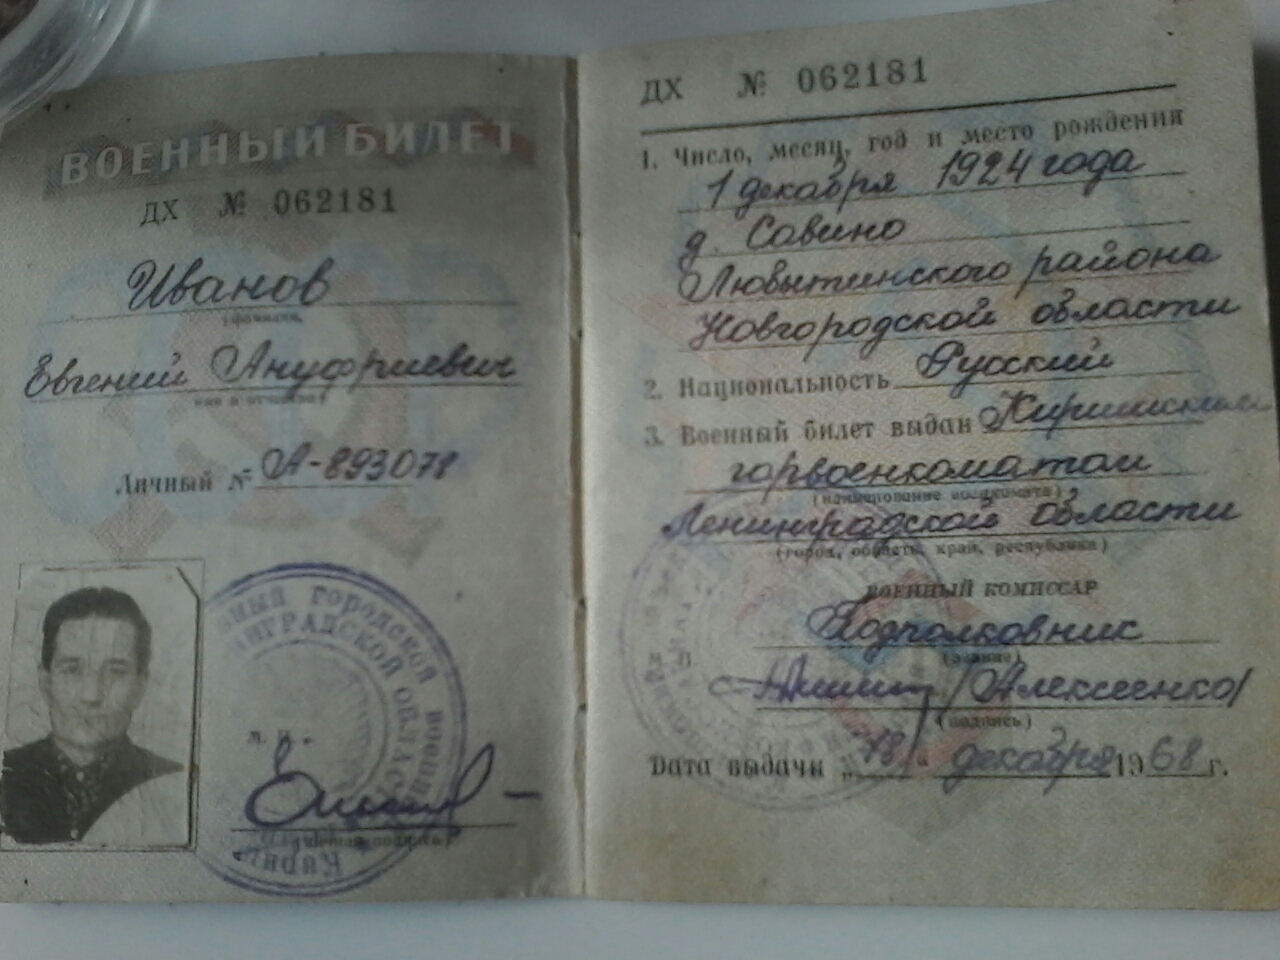 ВОЕННЫЙ БИЛЕТ
ДХ № 062181
Иванов
(фамилия)
Евгений Ануфриевич
имя и отчество)
Личный № А-893078
м. п.
(личная подпись)
ДХ № 062181
1. Число, месяц, год и место рождения
1 декабря 1924 года
д. Савино
Любытинского района
Новгородской области
2. Национальность Русский
3. Военный билет выдан Киришским
горвоенкоматом
(наименование военкомата)
Ленинградской области
(город, область, край, республика)
ВОЕННЫЙ КОМИССАР
Подполковник
(звание)
М. П.
/Алексеенко/
(подпись)
Дата выдачи „18" декабря 1968 г.